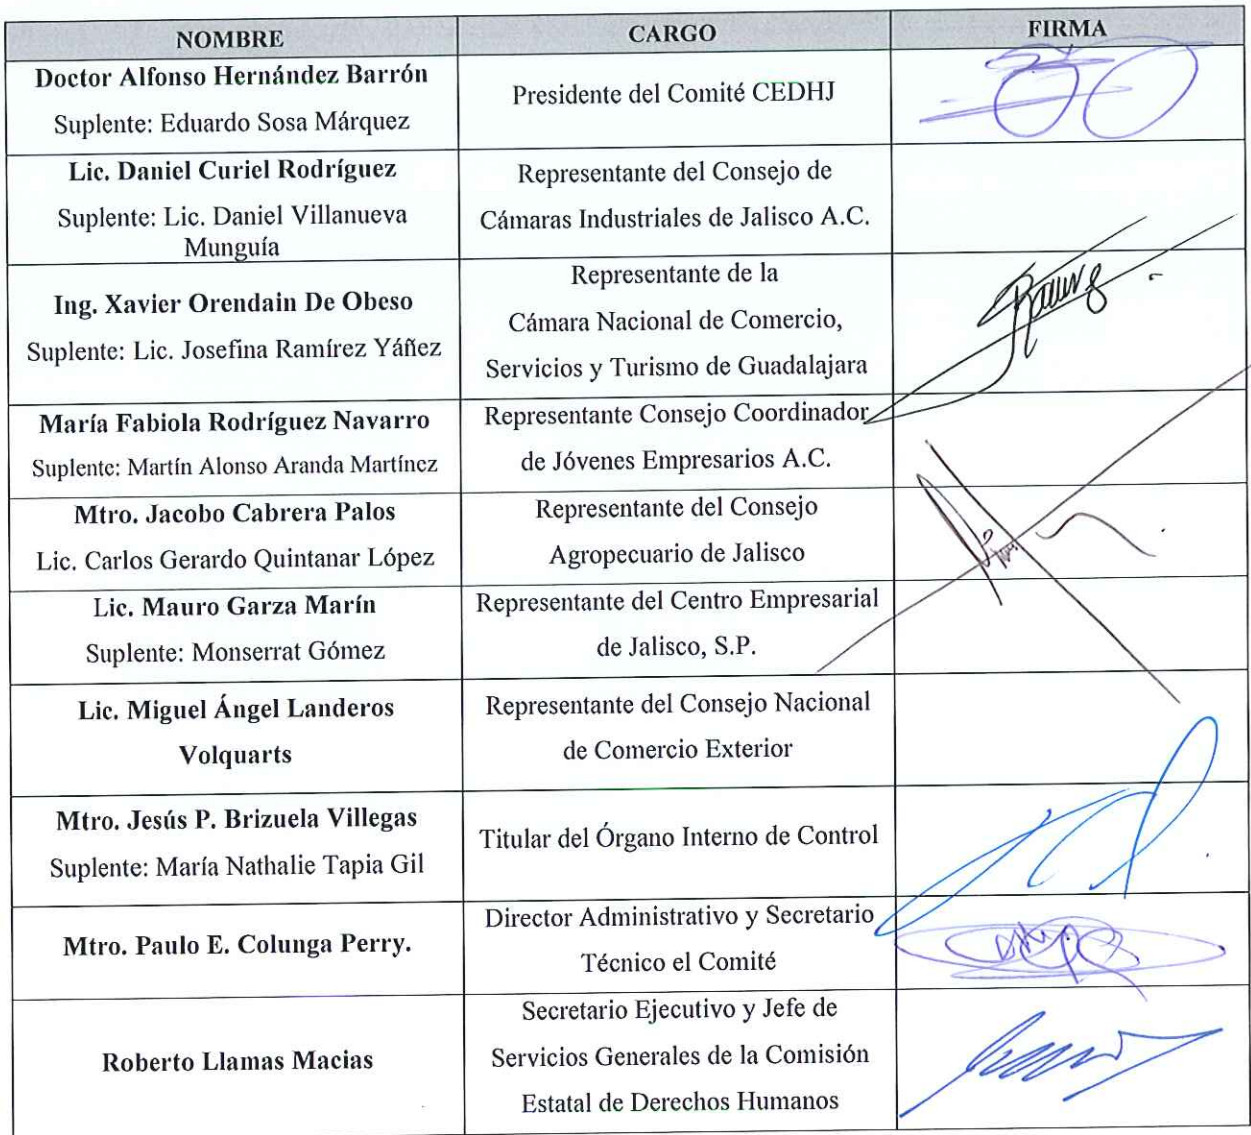 NOMBRE CARGO FIRMA
Doctor Alfonso Hernández Barrón
Suplente: Eduardo Sosa Márquez
Presidente del Comité CEDHJ
Lic. Daniel Curiel Rodríguez
Suplente: Lic. Daniel Villanueva
Munguía
Representante del Consejo de
Cámaras Industriales de Jalisco A.C.
Ing. Xavier Orendain De Obeso
Suplente: Lic. Josefina Ramírez Yáñez
Representante de la
Cámara Nacional de Comercio,
Servicios y Turismo de Guadalajara
María Fabiola Rodríguez Navarro
Suplente: Martín Alonso Aranda Martínez
Representante Consejo Coordinador
de Jóvenes Empresarios A.C.
Mtro. Jacobo Cabrera Palos
Lic. Carlos Gerardo Quintanar López
Representante del Consejo
Agropecuario de Jalisco
Lic. Mauro Garza Marín
Suplente: Monserrat Gómez
Representante del Centro Empresarial
de Jalisco, S.P.
Lic. Miguel Ángel Landeros
Volquarts
Representante del Consejo Nacional
de Comercio Exterior
Mtro. Jesús P. Brizuela Villegas
Suplente: María Nathalie Tapia Gil
Titular del Órgano Interno de Control
Mtro. Paulo E. Colunga Perry.
Director Administrativo y Secretario
Técnico el Comité
Roberto Llamas Macias
Secretario Ejecutivo y Jefe de
Servicios Generales de la Comisión
Estatal de Derechos Humanos